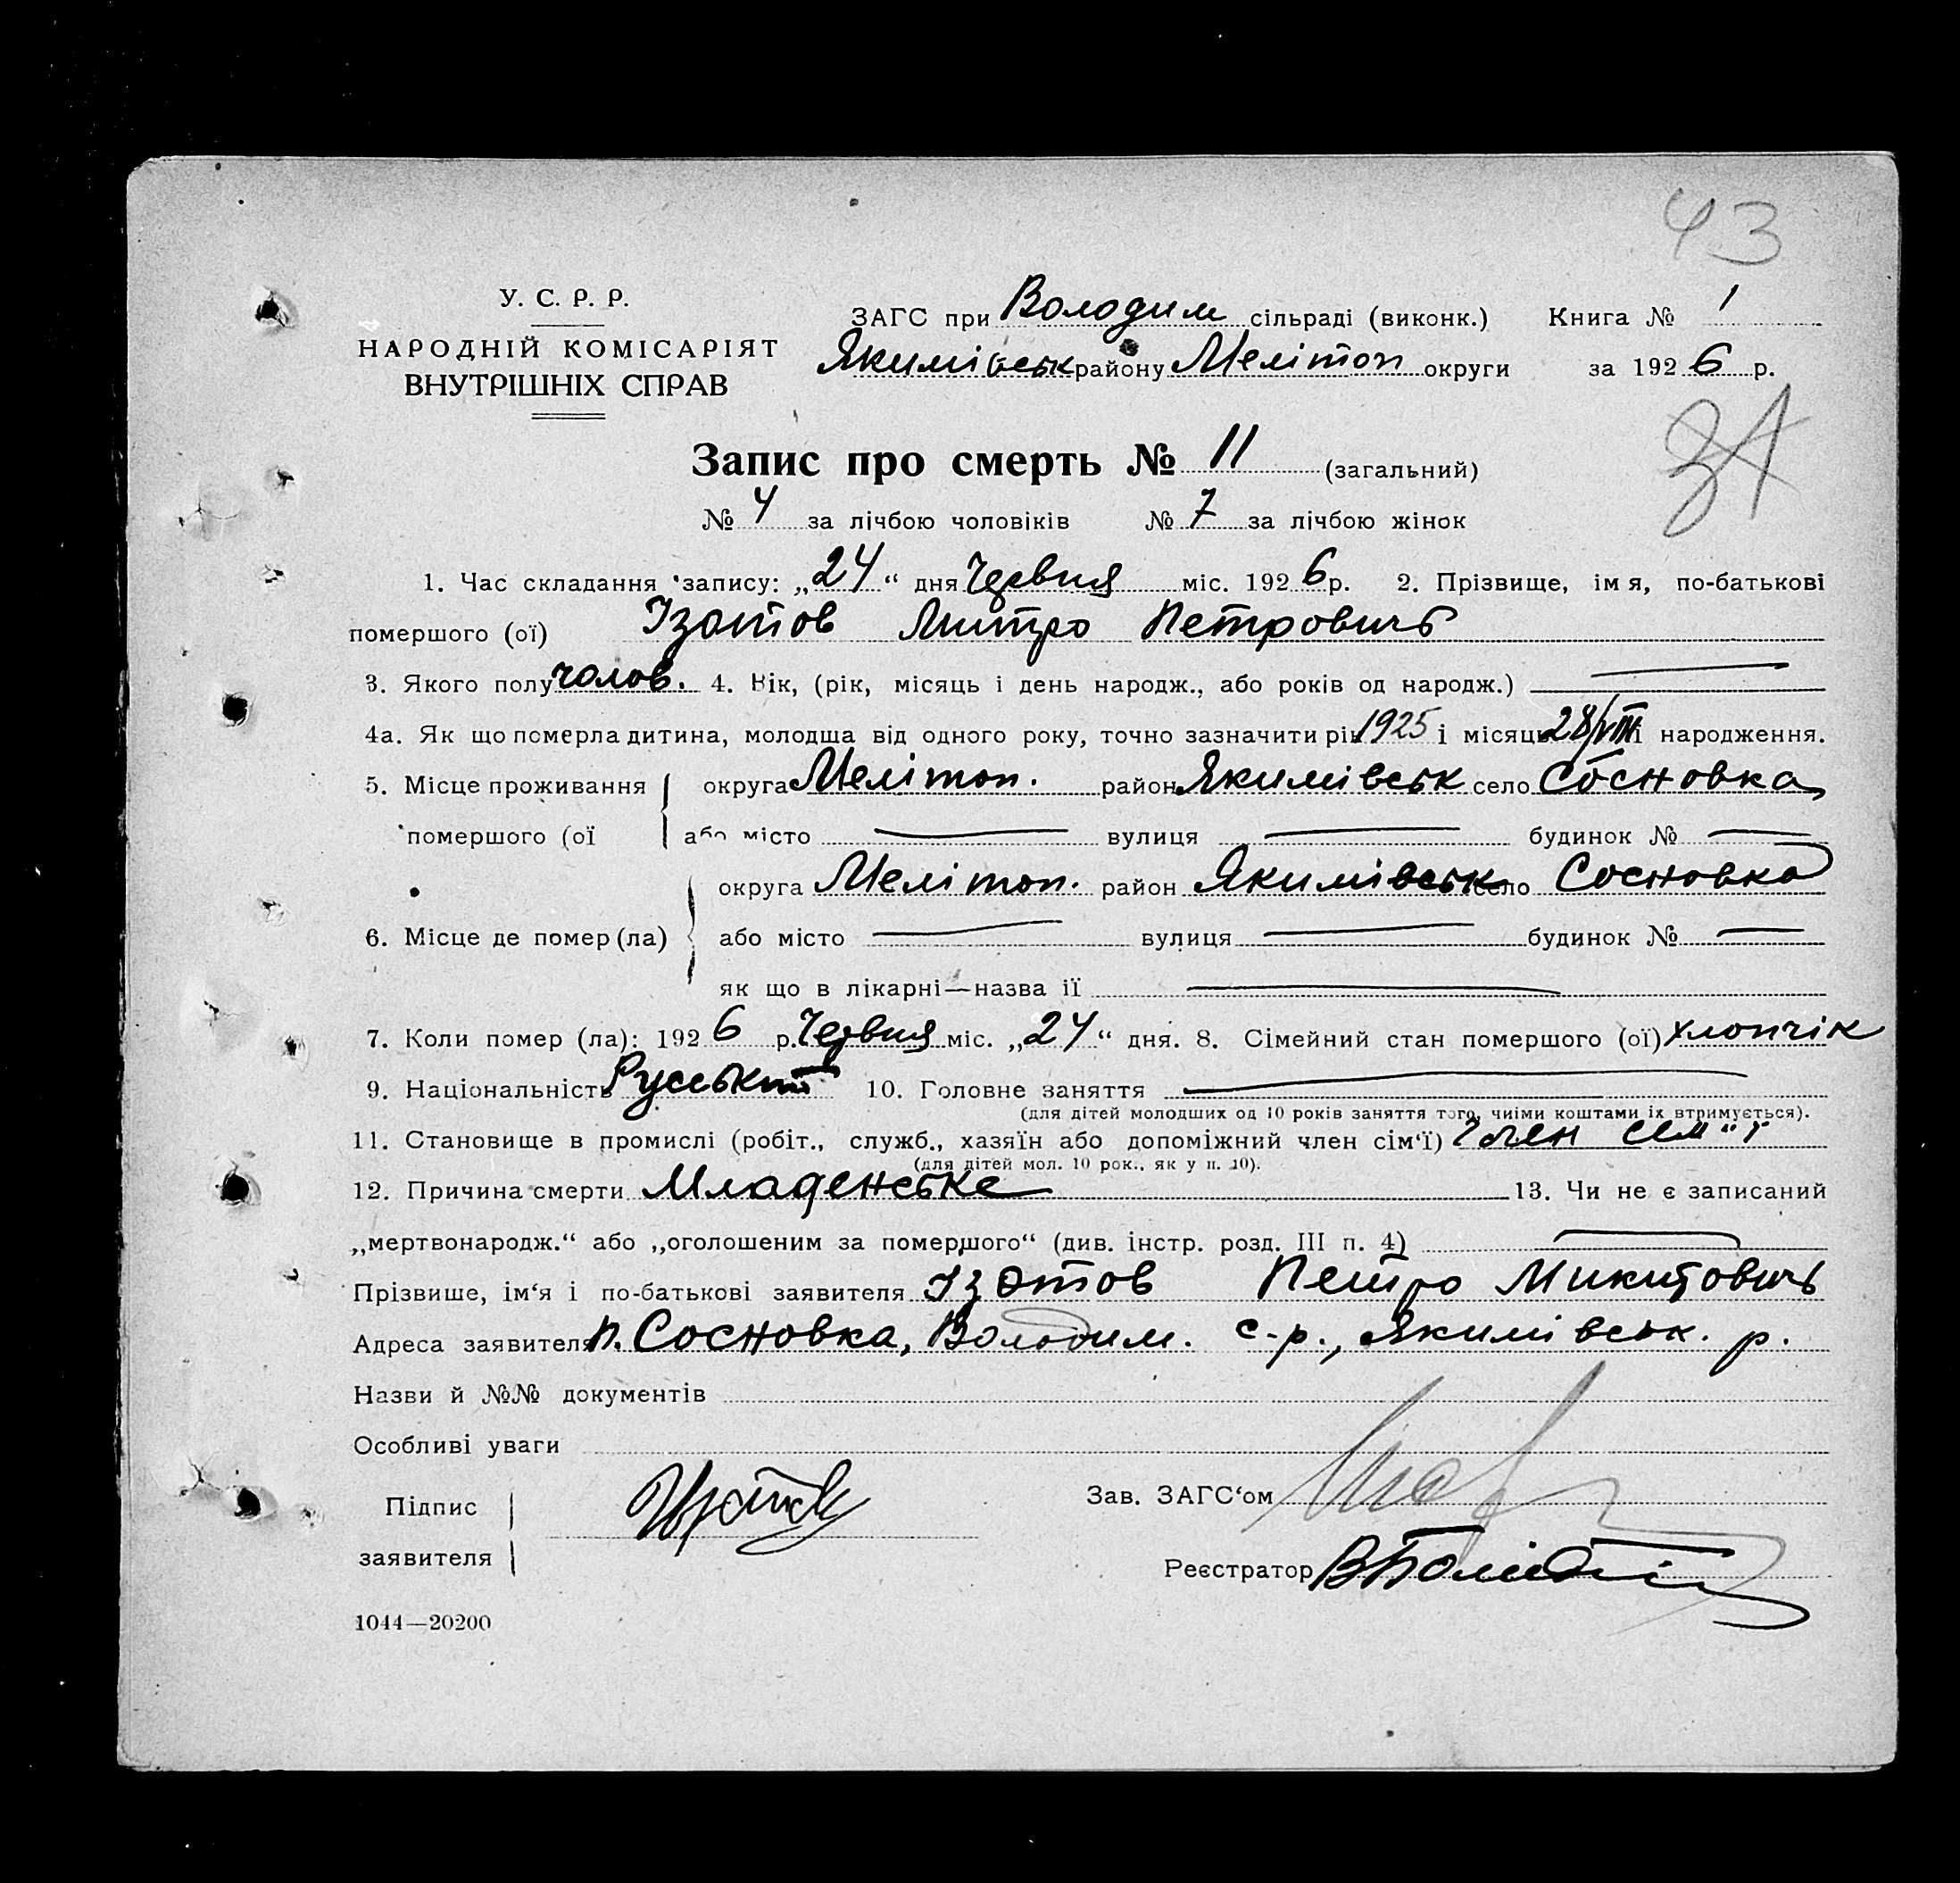 43
У. С. Р. Р.
НАРОДНІЙ КОМІСАРІЯТ
ВНУТРІШНІХ СПРАВ
ЗАГС при Володим сільраді (виконк.) Книга № 1
Якимівськ району Мелітоп округи за 1926 р.
Запис про смерть № 11 (загальний)
№ 4 за лічбою чоловіків № 7 за лічбою жінок
1. Час складання запису: „24“ дня Червня міс. 1926 р. 2. Прізвище, імя, по-батькові
помершого (ої) Ізотов Митро Петровичь
3. Якого полу чолов. 4. Вік, (рік, місяць і день народж., або років од народж.)
4а. Як що померла дитина, молодша від одного року, точно зазначити рік 1925 і місяць 28/VIII і народження.
5. Місце проживання округа Мелітоп. район Якимівськ село Сосновка
помершого (ої або місто вулиця будинок №
округа Мелітоп. район Якимівськ село Сосновка
6. Місце де помер (ла) або місто вулиця будинок №
як що в лікарні—назва її
7. Коли помер (ла): 1926 р. Червня міс. „24“ дня. 8. Сімейний стан помершого (ої) хлопчік
9. Національність Руський 10. Головне заняття
(для дітей молодших од 10 років заняття того, чиіми коштами їх втримується).
11. Становище в промислі (робіт., служб., хазяїн або допоміжний член сім‘ї) Член сем"ї
(для дітей мол. 10 рок., як у п. 10).
12. Причина смерти Младенське 13. Чи не є записаний
„мертвонародж.“ або „оголошеним за помершого“ (див. інстр. розд. III п. 4)
Прізвише, ім‘я і по-батькові заявителя Ізотов Петро Микитовичь
Адреса заявителя п. Сосновка, Володим. с-р., Якимівськ. р.
Назви й №№ документів
Особливі уваги
Підпис
заявителя
Зав. ЗАГС‘ом
Реєстратор
1044—20200